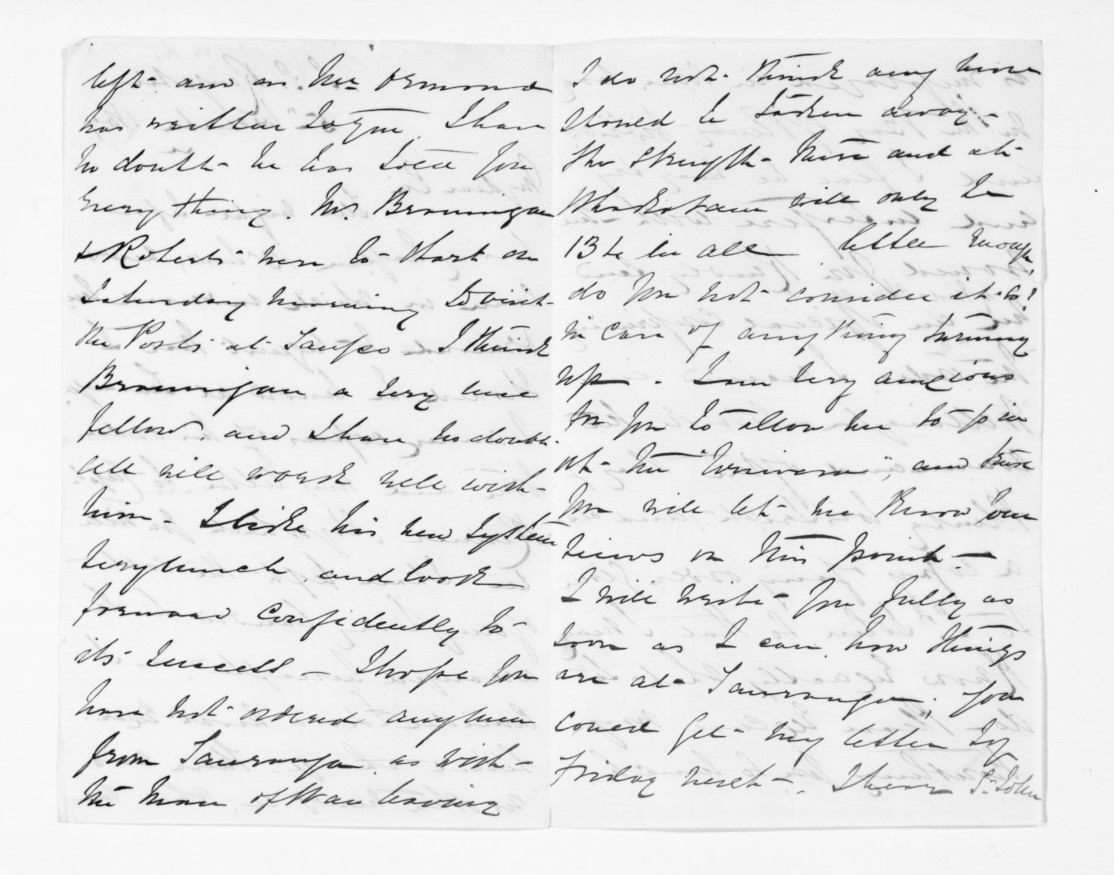 left and as Mr. Ormond
has written to you, I have
no doubt he has told you
every thing. Mr Brannigan
& Roberts were to start on
Saturday morning to visit
the Posts at Taupo - I think
Brannigan a very nice
fellow, and I have no doubt
all will work well with
him - I like his new system
very much, and look
forward confidently to
its success - I hope you
have not ordered any men
from Tauranga, as with
the Man of War leaving
I do not think any more
should be taken away -
The strength there and at
Whakatane will only be
134 in all little enough,
do you not consider it so?
in case of anything turning
up. I am very anxious
for you to allow me to join
at the and
you will let me know your
views on this point -
I will write you fully as
soon as I can, how things
are at Tauranga; you
could get my letter by
Friday next -. I hear St. John